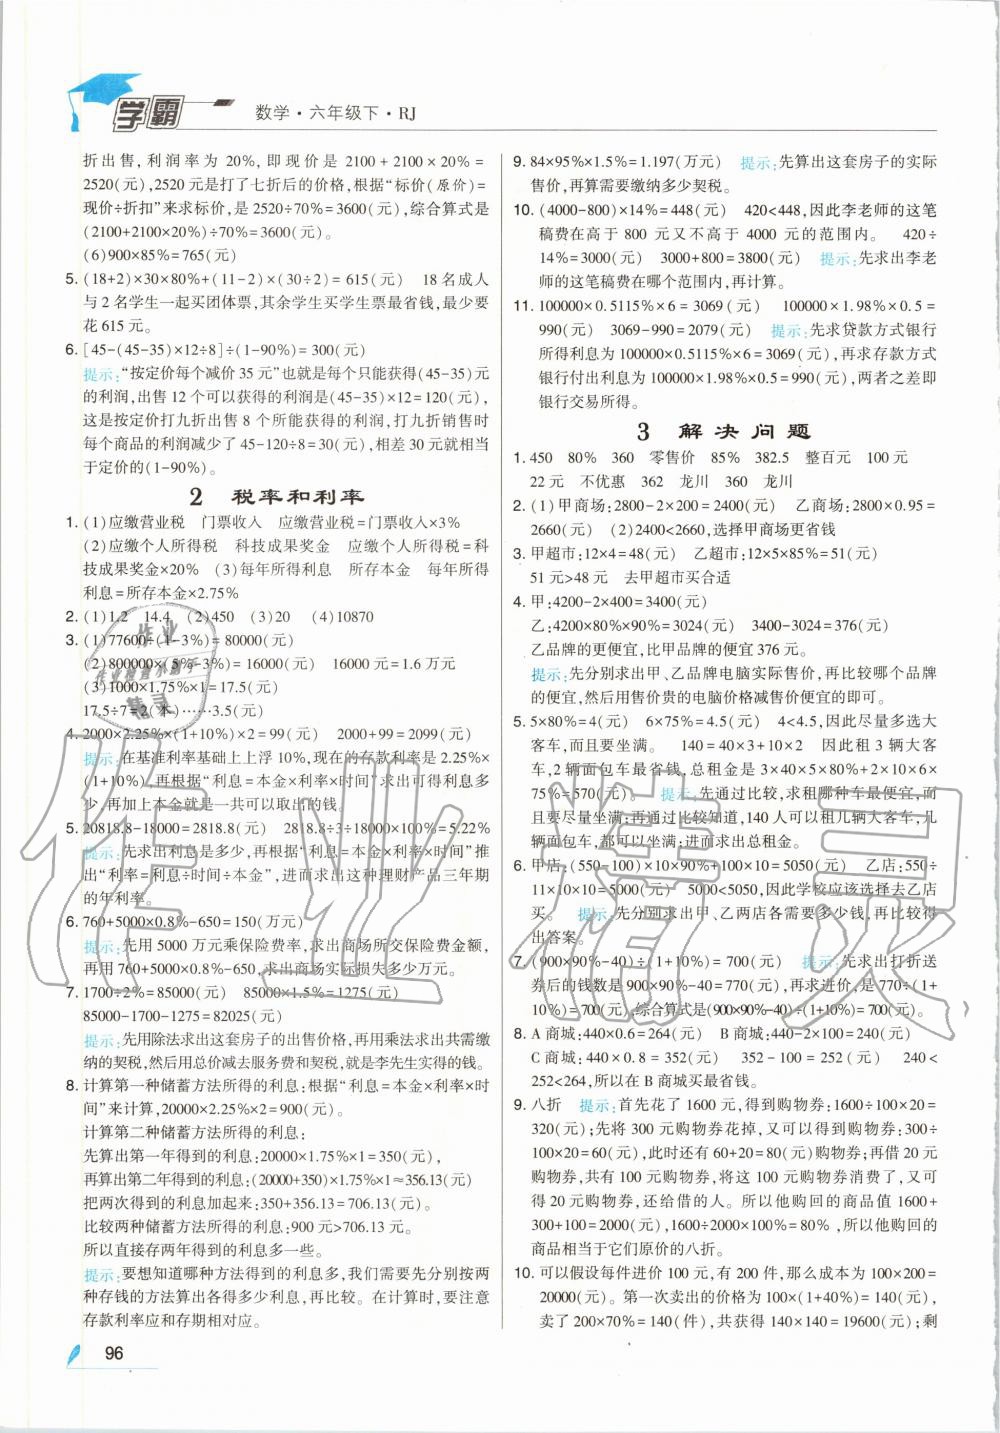 学霸
数学·六年级下·RJ
折出售,利润率为 20%,即现价是 2100+2100×20%=
2520(元),2520元是打了七折后的价格,根据“标价(原价)=
现价÷折扣”来求标价,是 2520÷70%=3600(元),综合算式是
(2100+2100×20%)÷70%=3600(元)。
(6)900×85%=765(元)
5. (18+2)×30×80%+(11-2)×(30÷2)=615(元) 18名成人
与2名学生一起买团体票,其余学生买学生票最省钱,最少要
花 615 元。
6. [45-(45-35)×12÷8]÷(1-90%)=300(元)
提示:“按定价每个减价35元”也就是每个只能获得(45-35)元
的利润,出售12个可以获得的利润是(45-35)×12=120(元),
这是按定价打九折出售8个所能获得的利润,打九折销售时
每个商品的利润减少了45-120÷8=30(元),相差30元就相当
于定价的(1-90%)。
2 税率和利率
1. (1)应缴营业税 门票收入 应缴营业税=门票收入×3%
(2)应缴个人所得税 科技成果奖金 应缴个人所得税=科
技成果奖金×20% (3)每年所得利息 所存本金 每年所得
利息=所存本金×2.75%
2. (1)1.2 14.4 (2)450 (3)20 (4)10870
3. (1)77600÷(1-3%)=80000(元)
(2)800000×(5%-3%)=16000(元) 16000元=1.6万元
(3)1000×1.75%×1=17.5(元)
17.5÷7=2(本)……3.5(元)
4. 2000×2.25%×(1+10%)×2=99(元) 2000+99=2099(元)
提示:在基准利率基础上上浮10%,现在的存款利率是2.25%×
(1+10%),再根据“利息=本金×利率×时间”求出可得利息多
少,再加上本金就是一共可以取出的钱。
5. 20818.8-18000=2818.8(元) 2818.8÷3÷18000×100%=5.22%
提示:先求出利息是多少,再根据“利息=本金×利率×时间”推
出“利率=利息÷时间÷本金”,进而求出这种理财产品三年期
的年利率。
6. 760+5000×0.8%-650=150(万元)
提示:先用5000万元乘保险费率,求出商场所交保险费金额,
再用760+5000×0.8%-650,求出商场实际损失多少万元。
7. 1700÷2%=85000(元) 85000×1.5%=1275(元)
85000-1700-1275=82025(元)
提示:先用除法求出这套房子的出售价格,再用乘法求出共需缴
纳的契税,然后用总价减去服务费和契税,就是李先生实得的钱。
8. 计算第一种储蓄方法所得的利息:根据“利息=本金×利率×时
间”来计算,20000×2.25%×2=900(元)。
计算第二种储蓄方法所得的利息:
先算出第一年得到的利息:20000×1.75%×1=350(元),
再算出第二年得到的利息:(20000+350)×1.75%×1≈356.13(元)
把两次得到的利息加起来:350+356.13=706.13(元)
比较两种储蓄方法所得的利息:900元>706.13元。
所以直接存两年得到的利息多一些。
提示:要想知道哪种方法得到的利息多,我们需要先分别按两
种存钱的方法算出各得多少利息,再比较。在计算时,要注意
存款利率应和存期相对应。
9. 84×95%×1.5%=1.197(万元) 提示:先算出这套房子的实际
售价,再算需要缴纳多少契税。
10. (4000-800)×14%=448(元) 420<448,因此李老师的这笔
稿费在高于 800 元又不高于 4000 元的范围内。 420÷
14%=3000(元) 3000+800=3800(元) 提示:先求出李老
师的这笔稿费在哪个范围内,再计算。
11. 100000×0.5115%×6=3069(元) 100000×1.98%×0.5=
990(元) 3069-990=2079(元) 提示:先求贷款方式银行
所得利息为 100000×0.5115%×6=3069(元),再求存款方式
银行付出利息为100000×1.98%×0.5=990(元),两者之差即
银行交易所得。
3 解决问题
1. 450 80% 360 零售价 85% 382.5 整百元 100元
22元 不优惠 362 龙川 360 龙川
2. (1)甲商场:2800-2×200=2400(元) 乙商场:2800×0.95=
2660(元) (2)2400<2660,选择甲商场更省钱
3. 甲超市:12×4=48(元) 乙超市:12×5×85%=51(元)
51元>48元 去甲超市买合适
4. 甲:4200-2×400=3400(元)
乙:4200×80%×90%=3024(元) 3400-3024=376(元)
乙品牌的更便宜,比甲品牌的便宜376元。
提示:先分别求出甲、乙品牌电脑实际售价,再比较哪个品牌
的便宜,然后用售价贵的电脑价格减售价便宜的即可。
5. 5×80%=4(元) 6×75%=4.5(元) 4<4.5,因此尽量多选大
客车,而且要坐满。 140=40×3+10×2 因此租3辆大客
车,2辆面包车最省钱,总租金是3×40×5×80%+2×10×6×
75%=570(元)。 提示:先通过比较,求租哪种车最便宜,而
且要尽量坐满;再通过比较知道,140人可以租几辆大客车,几
辆面包车,都可以坐满;进而求出总租金。
6. 甲店:(550-100)×10×90%+100×10=5050(元) 乙店:550÷
11×10×10=5000(元) 5000<5050,因此学校应该选择去乙店
买。 提示:先分别求出甲、乙两店各需要多少钱,再比较得
出答案。
7. (900×90%-40)÷(1+10%)=700(元) 提示:先求出打折送
券后的钱数是900×90%-40=770(元),再求进价,是770÷(1+
10%)=700(元),综合算式是(900×90%-40)÷(1+10%)=700(元)。
8. A商城:440×0.6=264(元) B商城:440-2×100=240(元)
C商城:440×0.8=352(元) 352-100=252(元) 240<
252<264,所以在B商城买最省钱。
9. 八折 提示:首先花了1600元,得到购物券:1600÷100×20=
320(元);先将300元购物券花掉,又可以得到购物券:300÷
100×20=60(元),此时还有60+20=80(元)购物券;再借20元
购物券,共有100元购物券,将这100元购物券消费了,又可
得20元购物券,还给借的人。所以他购回的商品值1600+
300+100=2000(元),1600÷2000×100%=80%,所以他购回的
商品相当于它们原价的八折。
10. 可以假设每件进价100元,有200件,那么成本为100×200=
20000(元)。第一次卖出的价格为100×(1+40%)=140(元),
卖了200×70%=140(件),共获得140×140=19600(元);剩
96
作业
作业检查小助手
精灵
作业精灵